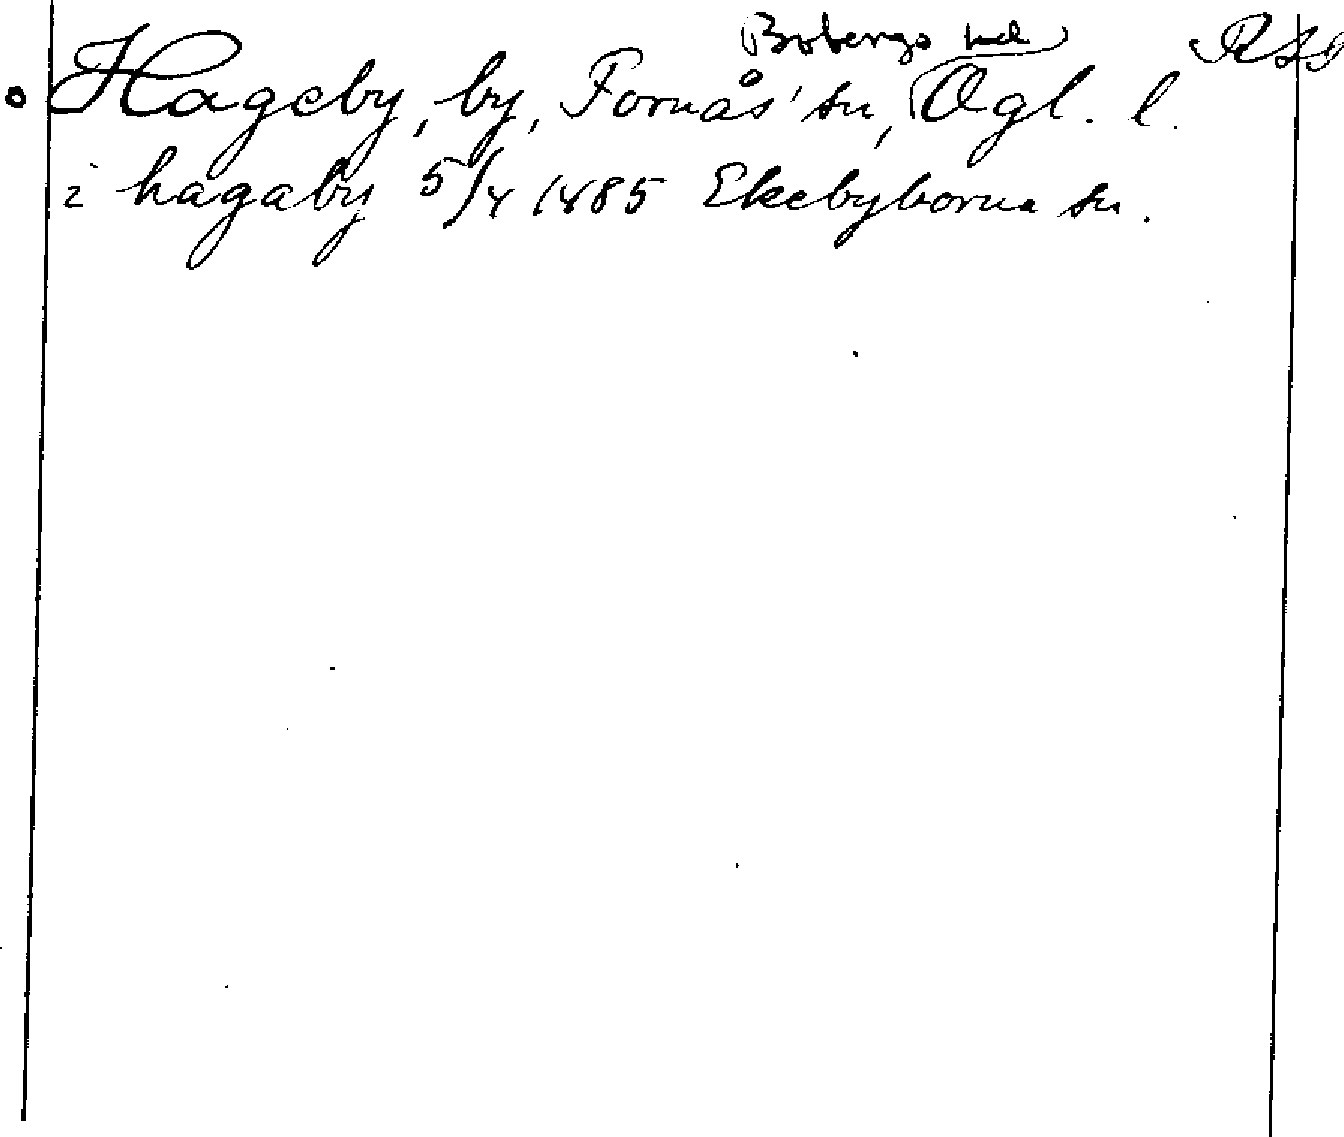 Bobergs hd
Hageby, by, Fornåsa sn, Ögl. l.
i hagaby 5/4 1485 Ekebyborna sn.